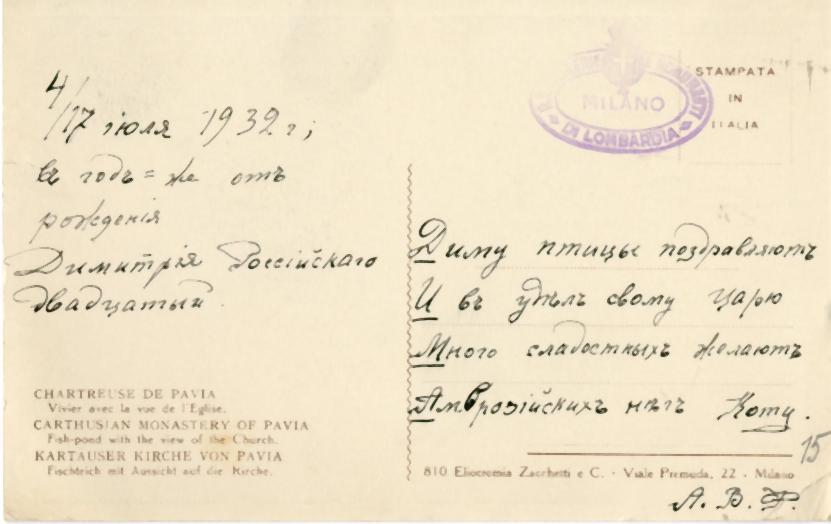 4/
/17 іюля 1932 г;
въ годъ = же отъ
рожденія
Димитрія Россійскаго
двадцатый.
CHARTREUSE DE PAVIA
Vivier avec la vue de l'Eglise.
CARTHUSIAN MONASTERY OF PAVIA
Fish-pond with the view of the Church.
KARTAUSER KIRCHE VON PAVIA
Fischteich mit Aussicht auf die Kirche.
MILANO
DI LOMBARDIA
STAMPATA
IN
ITALIA
Диму птицы поздравляютъ
И въ удѣлъ свому царю
Много сладостныхъ желаютъ
Амврозійскихъ нѣгъ Коту.
15
810 Eliocromia Zacchetti e C. - Viale Premuda, 22 - Milano
А. В. Р.